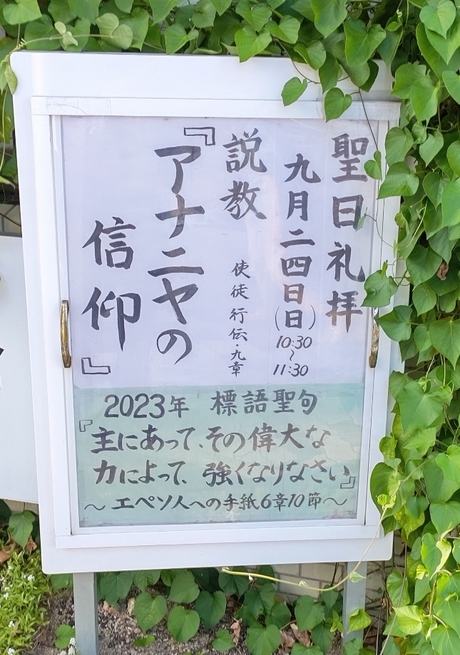 聖日礼拝
九月二四日(日)
10:30
~
11:30
説教
使徒行伝・九章
『アナニヤの
信仰』
2023年 標語聖句
『主にあって、その偉大な
力によって、強くなりなさい』
~エペソ人への手紙6章10節~